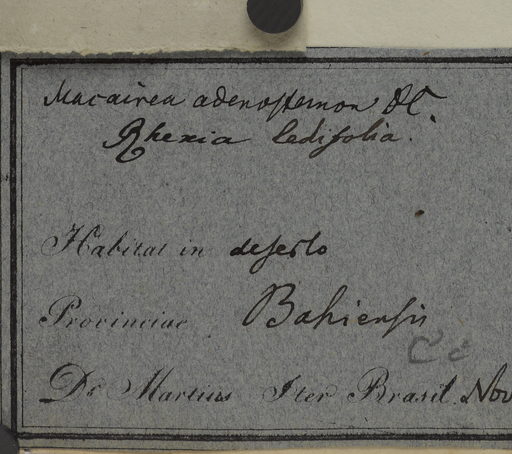 Macairea adenostemon DC.
Rhexia ledifolia.
Habitat in deserto
Provinciae Bahiensis
C c
Dr Martius Iter Brasil. Nov